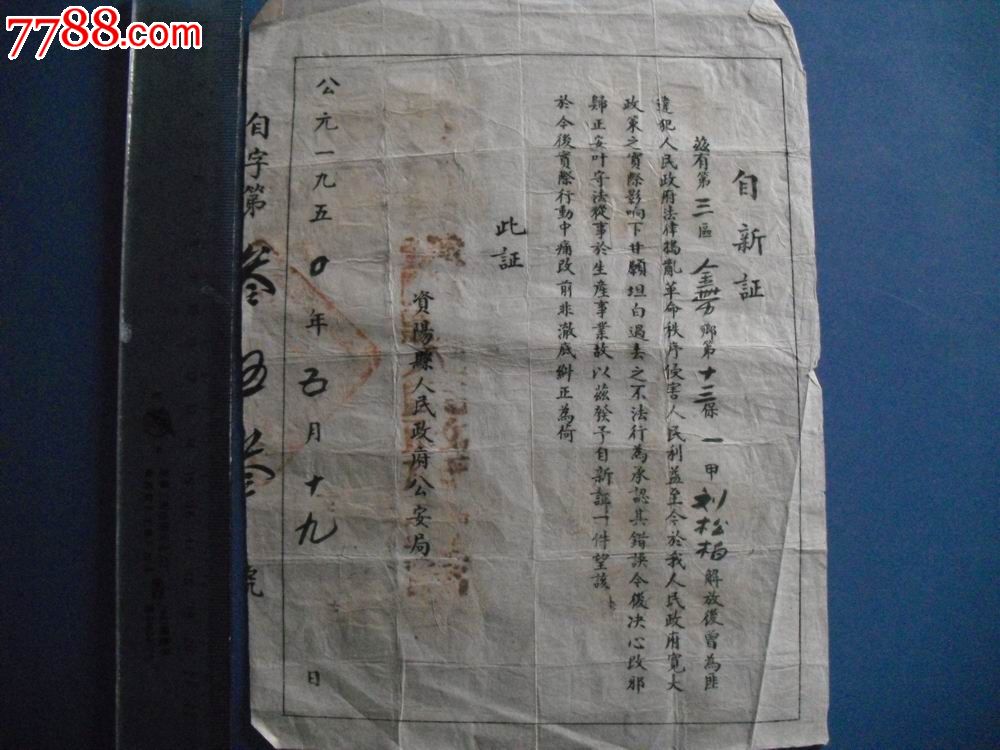 7788.com
自新証
茲有第三區金带鄉第十三保一甲刘松柏解放後曾為匪
違犯人民政府法律搗亂革命秩序侵害人民利益至今於我人民政府寬大
政策之實際影响下甘願坦白過去之不法行為承認其錯誤今後决心改邪
歸正安叶守法從事於生產事業故以茲發予自新証一件望該
於今後實際行動中痛改前非澈底糾正為荷
此証
資陽縣人民政府公安局
公元一九五0年五月十九日
自字第叁五叁號